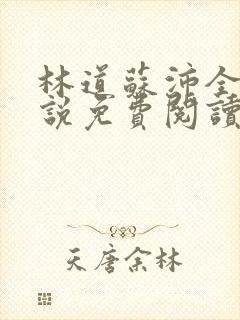 林道蘇沛全
說免費閱讀
天唐余林